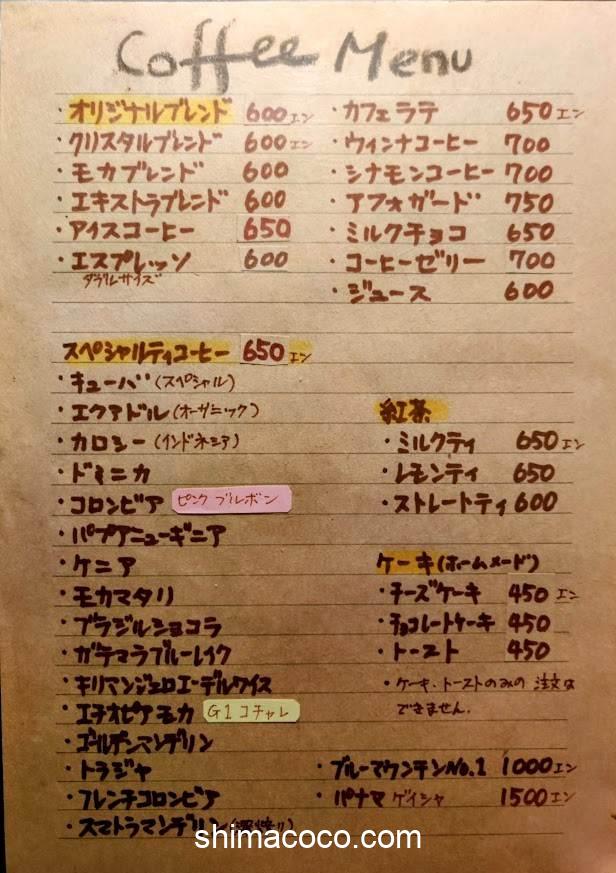 Coffee Menu
・オリジナルブレンド 600エン
・クリスタルブレンド 600エン
・モカブレンド 600
・エキストラブレンド 600
・アイスコーヒー 650
・エスプレッソ 600
ダブルサイズ
・カフェラテ 650エン
・ウィンナコーヒー 700
・シナモンコーヒー 700
・アフォガード 750
・ミルクチョコ 650
・コーヒーゼリー 700
・ジュース 600
スペシャルティコーヒー 650エン
・キューバ(スペシャル)
・エクアドル(オーガニック)
・カロシー(インドネシア)
・ドミニカ
・コロンビア ピンクブルボン
・パプアニューギニア
・ケニア
・モカマタリ
・ブラジルショコラ
・ガテマラブルーレイク
・キリマンジェロエーデルワイス
・エチオピアモカ G1コチャレ
・ゴールデンマンデリン
・トラジャ
・フレンチコロンビア
・スマトラマンデリン
紅茶
・ミルクティ 650エン
・レモンティ 650
・ストレートティ 600
ケーキ(ホームメード)
・チーズケーキ 450エン
・チョコレートケーキ 450
・トースト 450
・ケーキ、トーストのみの注文は
できません.
・ブルーマウンテンNo.1 1000エン
・パナマゲイシャ 1500エン
shimacoco.com